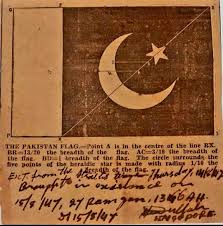 THE PAKISTAN FLAG.—Point A is in the centre of the line EX.
BR=13/20 the breadth of the flag. AC=3/10 the breadth of
the flag. BD=¼ breadth of the flag. The circle surrounds the
five points of the heraldic star is made with radius 1/10 the
breadth of the flag.
Ext from the Thursday, 14/8/47
Brought in existence on
15/8/47, 27 Ramzan, 1366 A.H.
15/8/47
LAHORE